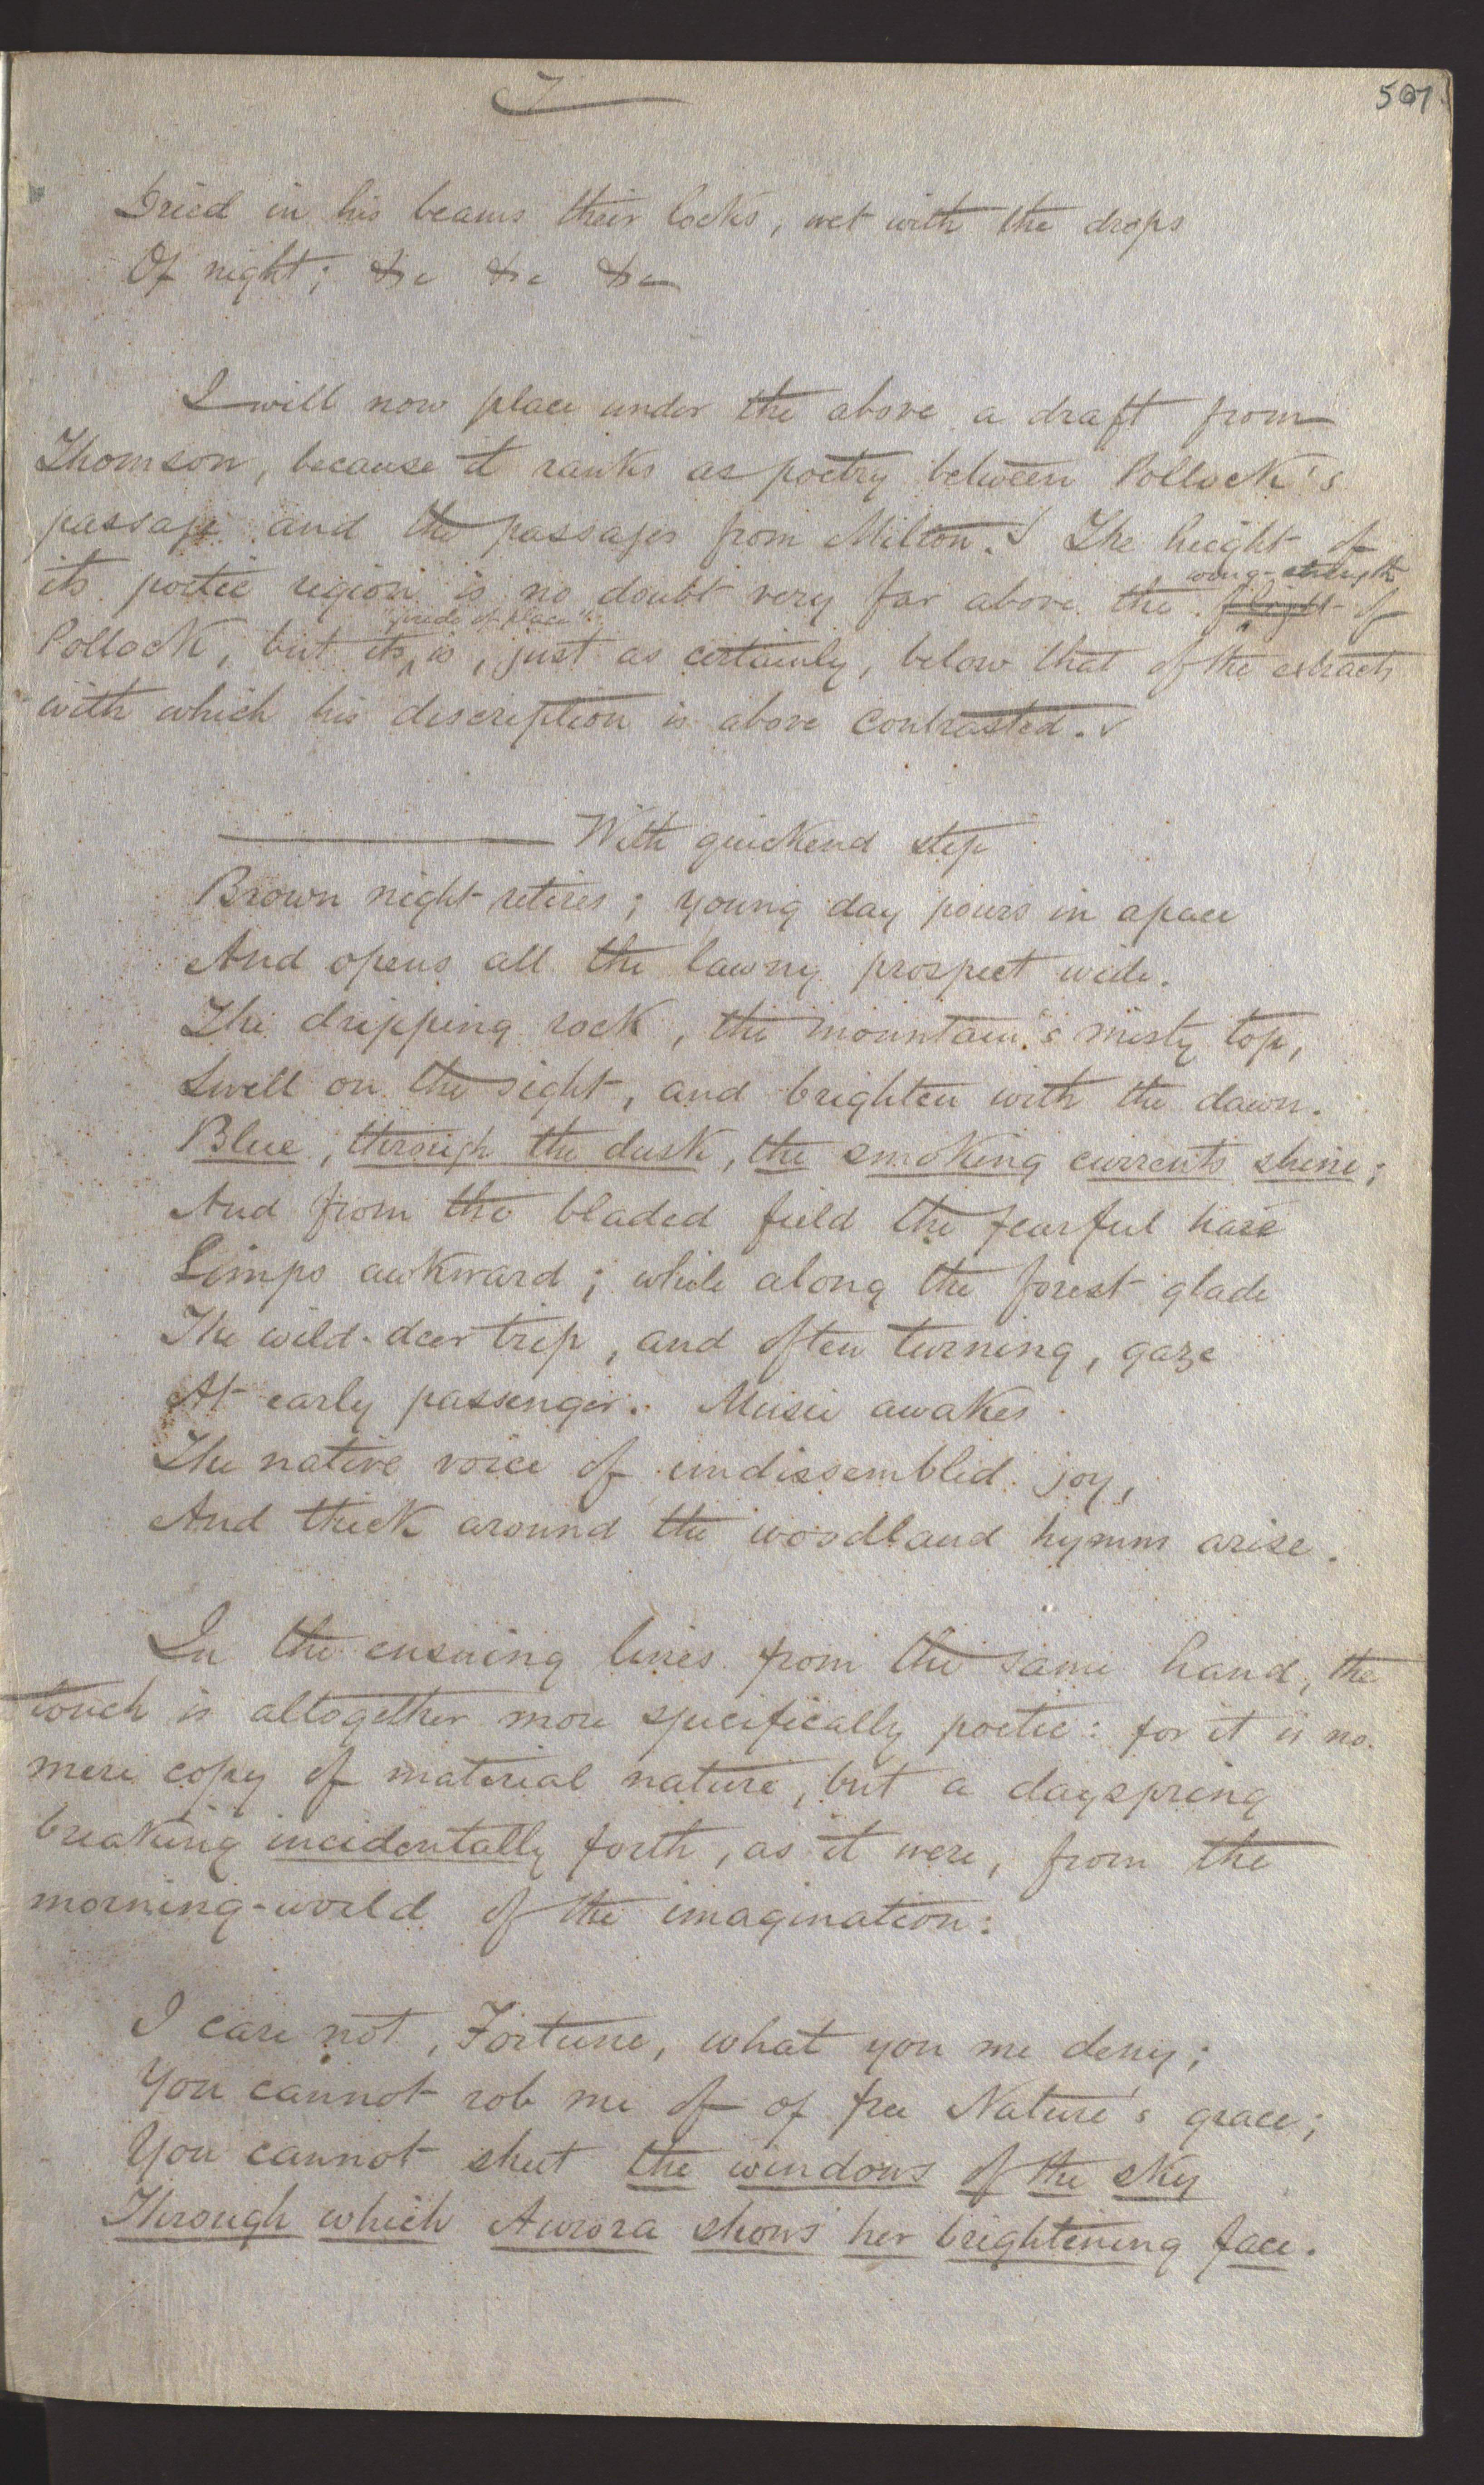 7
507
Dried in his beams their locks, wet with the drops
Of night; &c &c &c
I will now place under the above a draft from
Thomson, because it ranks as poetry between Pollock's
passage and the passages from Milton. The height of
its poetic region is no doubt very far above the flight wing-strength of
Pollock, but its "pride of place" is, just as certainly, below that of the extracts
with which his description is above contrasted.
With quickend step
Brown night retires; young day pours in apace
And opens all the lawny prospect wide.
The dripping rock, the mountain's misty top,
Swell on the sight, and brighten with the dawn.
Blue, through the dusk, the smoking currents shine;
And from the bladed field the fearful hare
Limps awkward; while along the forest glade
The wild-deer trip, and often turning, gaze
At early passenger. Music awakes
The native voice of undissembled joy,
And thick around the woodland hymns arise.
In the ensuing lines from the same hand, the
touch is altogether more specifically poetic: for it is no
mere copy of material nature, but a dayspring
breaking incidentally forth, as it were, from the
morning-world of the imagination:
I care not, Fortune, what you me deny;
You cannot rob me of of free Nature's grace;
You cannot shut the windows of the sky
Through which Aurora shows her brightening face.